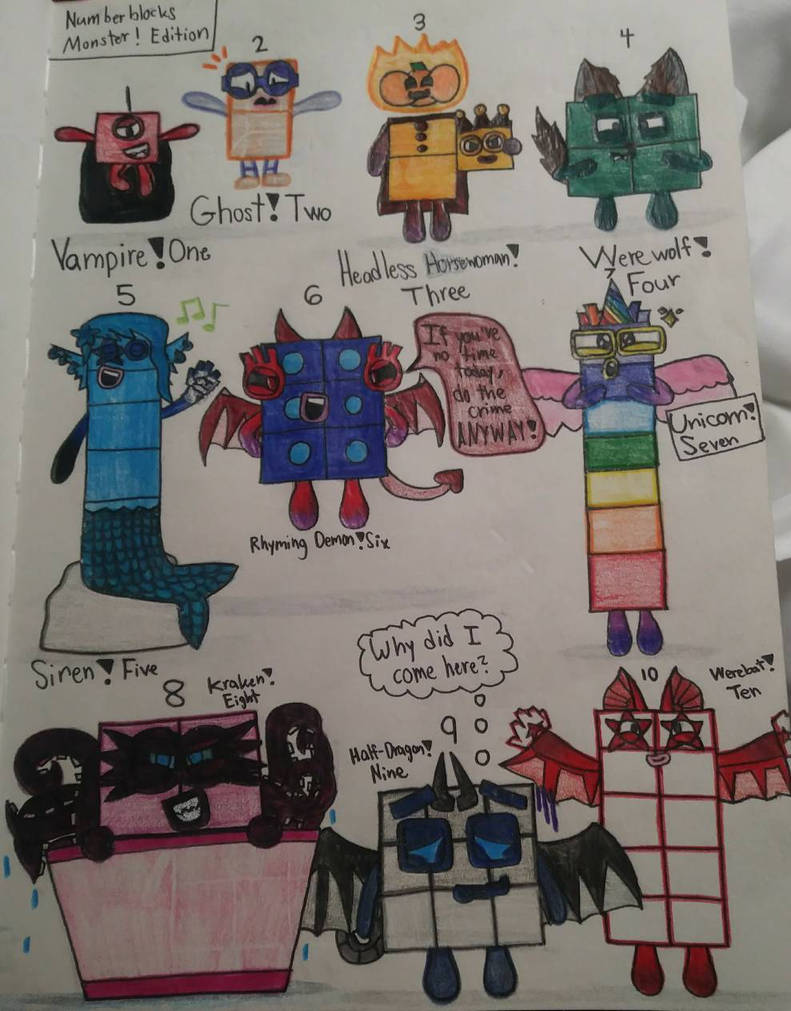 Numberblocks
Monster! Edition
2
3
4
Ghost! Two
Vampire! One
Headless Horsewoman!
Three
Werewolf!
Four
5
6
7
If you've
no time
today,
do the
crime
ANYWAY!
Unicorn!
Seven
Rhyming Demon! Six
Siren! Five
8
Kraken!
Eight
Why did I
come here?
9
Half-Dragon!
Nine
10
Werebat!
Ten